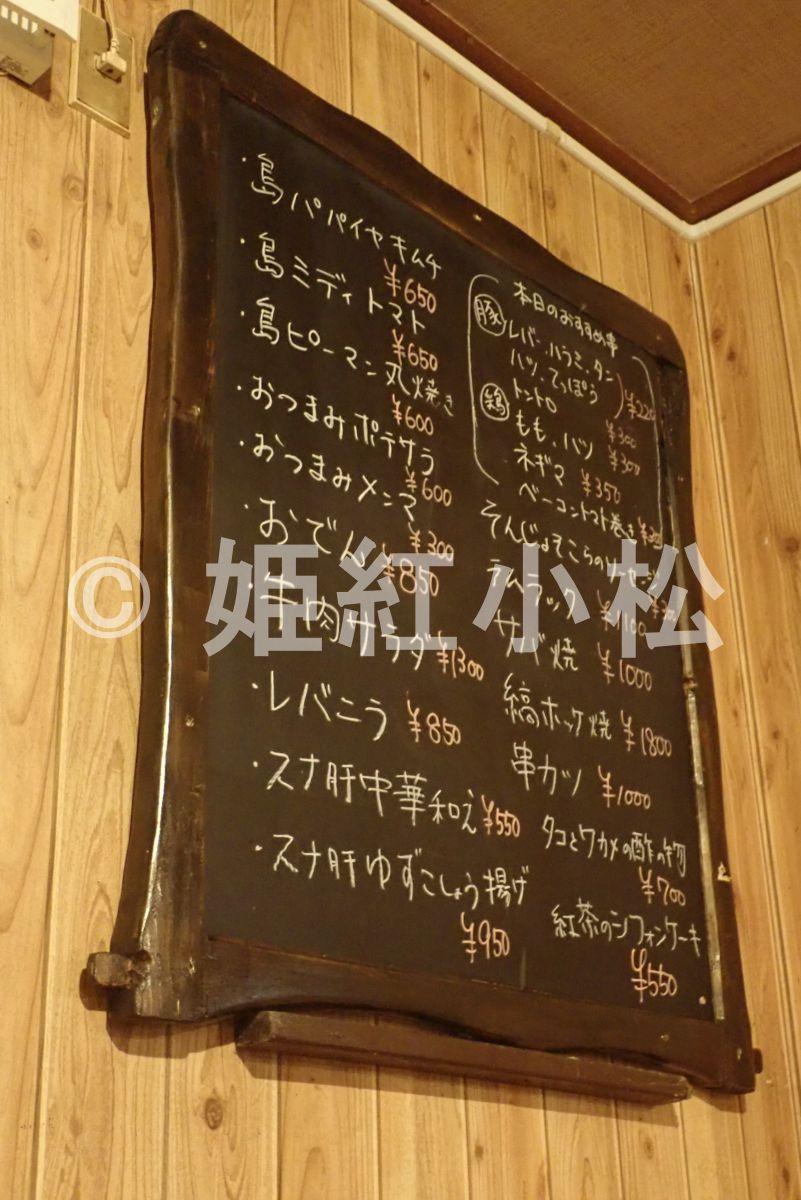 ・島パパイヤキムチ
¥650
・島ミディトマト
¥650
・島ピーマン丸焼き
¥600
・おつまみポテサラ
¥600
・おつまみメンマ
¥300
・おでん ¥850
・牛肉サラダ ¥1300
・レバニラ ¥850
・スナ肝中華和え ¥550
・スナ肝ゆずこしょう揚げ
¥950
本日のおすすめ串
豚 レバー、ハラミ、タン
ハツ、てっぽう ¥220
トントロ ¥300
鶏 もも、ハツ ¥300
ネギマ ¥350
ベーコントマト巻き
そんじょそこらのソーセージ
ラムラック ¥1100
サバ焼 ¥1000
縞ホッケ焼 ¥1800
串カツ ¥1000
タコとワカメの酢の物
¥700
紅茶のシフォンケーキ
¥550
© 姫紅小松